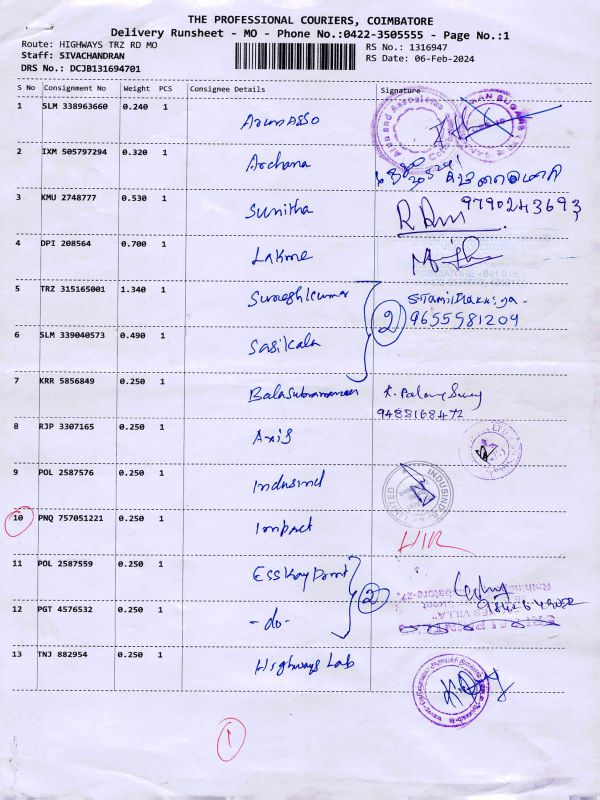 THE PROFESSIONAL COURIERS, COIMBATORE
Delivery Runsheet - MO - Phone No.:0422-3505555 - Page No.:1
Route: HIGHWAYS TRZ RD MO
RS No.: 1316947
Staff: SIVACHANDRAN
RS Date: 06-Feb-2024
DRS No.: DCJB131694701
S No Consignment No Weight PCS Consignee Details Signature
1 SLM 338963660 0.240 1 Arun Asso
2 IXM 505797294 0.320 1 Archana
3 KMU 2748777 0.530 1 Sunitha 9790243693
4 DPI 208564 0.700 1 Lakme
5 TRZ 315165001 1.340 1 Sureshkumar
2 9655581209
6 SLM 339040573 0.490 1 Sasikala
7 KRR 5856849 0.250 1 Balasubramanian
9488168472
8 RJP 3307165 0.250 1 Axis
9 POL 2587576 0.250 1 Indusind INDUSIND LIMITED
10 PNQ 757051221 0.250 1 Impact HIR
11 POL 2587559 0.250 1 Esskay Point
2
12 PGT 4576532 0.250 1 -do-
13 TNJ 882954 0.250 1 Highways Lab
1